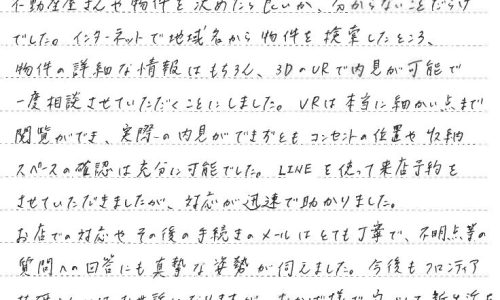 不動産屋さんや物件を決めたら良いか、分からないことだらけ
でした。インターネットで地域名から物件を検索したところ、
物件の詳細な情報はもちろん、3DのVRで内見が可能で
一度相談させていただくことにしました。VRは本当に細かい点まで
閲覧ができ、実際の内見ができずともコンセントの位置や収納
スペースの確認は充分に可能でした。LINEを使って来店予約を
させていただきましたが、対応が迅速で助かりました。
お店での対応やその後の手続きのメールはとても丁寧で、不明点等の
質問への回答にも真摯な姿勢が伺えました。今後もフロンティア